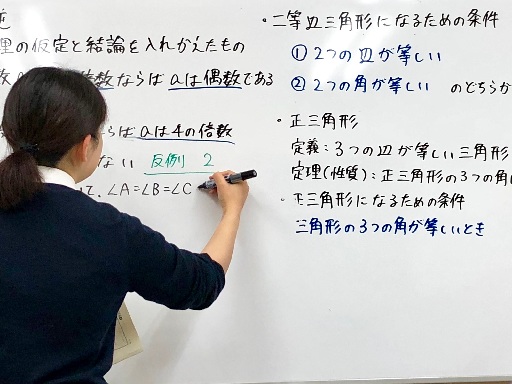 理の仮定と結論を入れかえたもの
数ならば aは偶数である
らば aは4の倍数
ない 反例 2
て、∠A=∠B=∠C
・二等辺三角形になるための条件
① 2つの辺が等しい
② 2つの角が等しい のどちらか
・正三角形
定義:3つの辺が等しい三角形
定理(性質):正三角形の3つの角
・正三角形になるための条件
三角形の3つの角が等しいとき